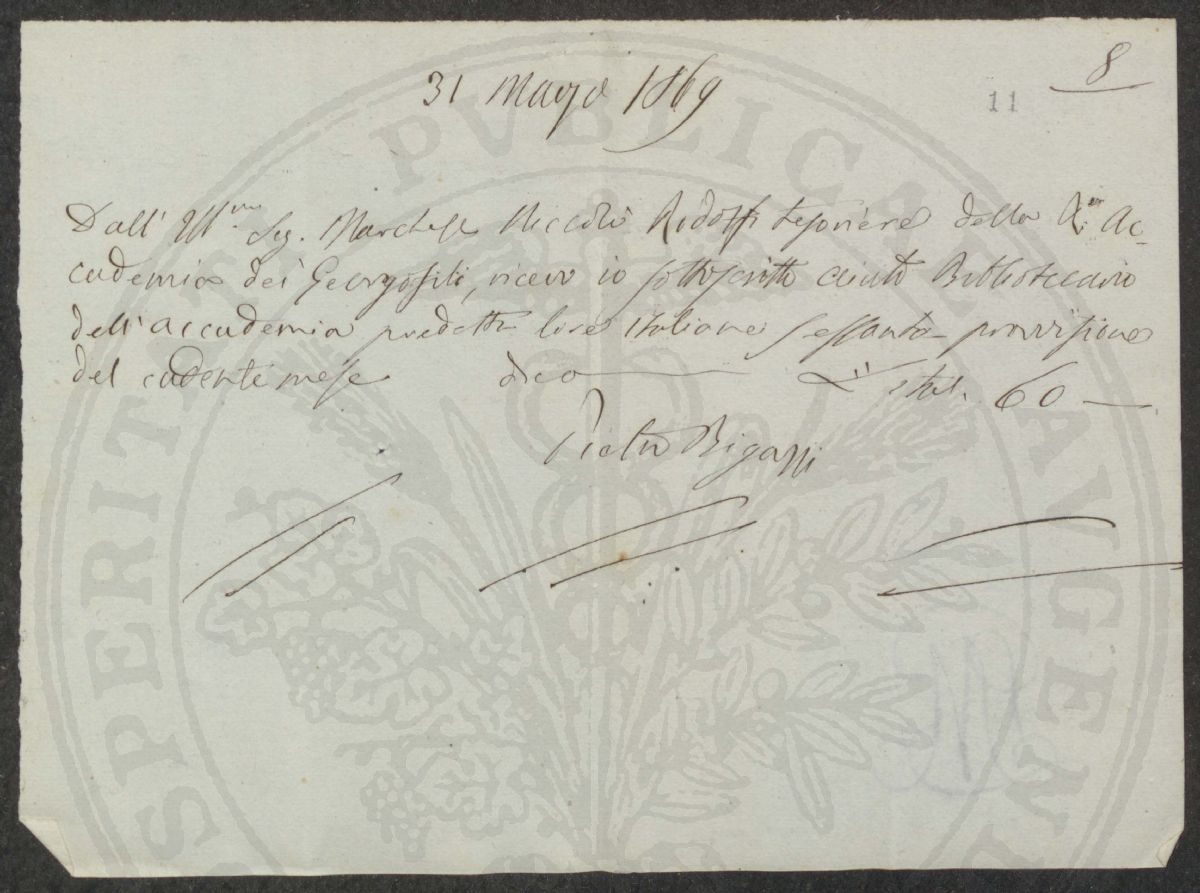 8
11
31 Maggio 1869
Dall' Ill.mo Sig. Marchese Niccolò Ridolfi tesoriere della R.
Accademia dei Georgofili, ricevo io sottoscritto Bibliotecario
dell'accademia predetta lire italiane sessanta provvisione
del cadente mese dico Ital. 60 —
Pietro Bigazzi
PROSPERITATI PVBLICAE AVGENDAE